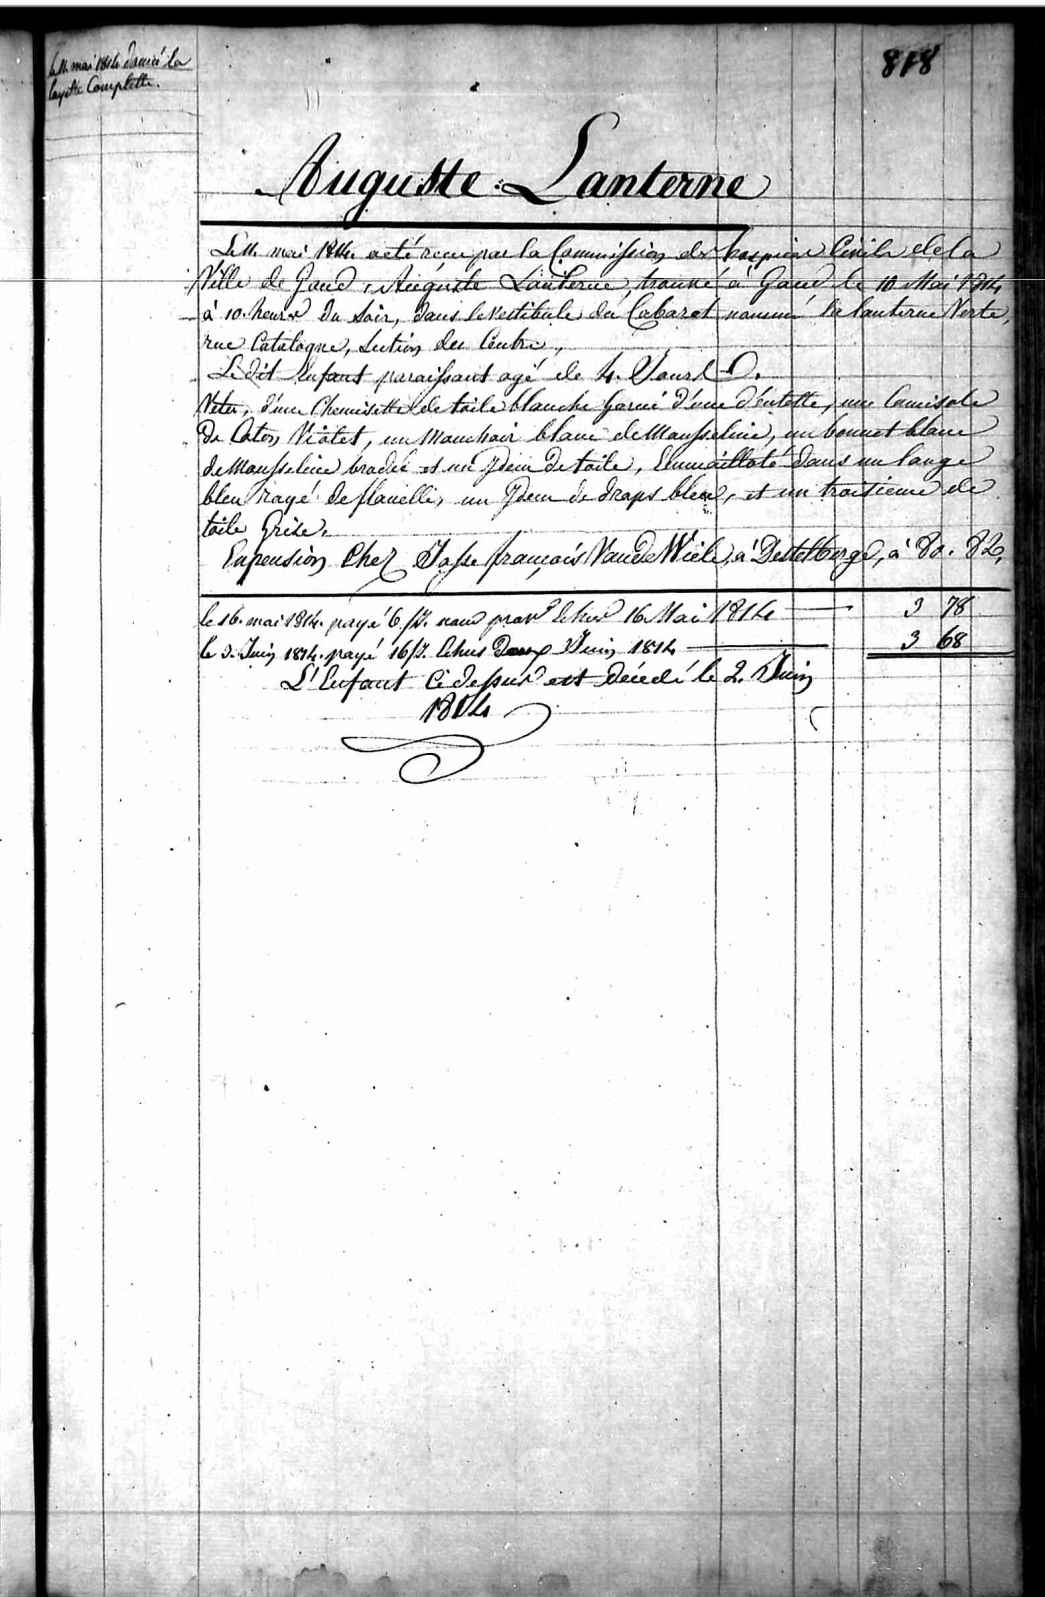 le 11 mai 1814 donné la
layette Complette.
818
Auguste Lanterne
Le 11. mai 1814. a eté recu par la Commission des hospices Civils de la
Ville de Gand, Auguste Lanterne, trouvé à Gand le 10 Mai 1814
à 10. heures du Soir, dans le vestibule du Cabaret nommé la lanterne Verte,
rue Catalogne, Section du Centre,
Le dit Enfant paraissant agé de 4. Jours
Vetu, d'une Chemisette de toile blanche garni d'une d'entelle, une Camisole
De Coton Violet, un Mouchoir blanc de Mousseline, un bonnet blanc
de Mousseline brodée et un Idem de toile, Emmailloté dans un lange
bleu rayé de flanelle, un Idem de draps bleu, et un troisieme de
toile Grise.
En pension Chez Josse françois Van de Wiele, à Destelberge, à 80. 82,
le 16. mai 1814. payé 6 fr. echus 16 Mai 1814 3 78
le 3. Juin 1814. payé 16 fr. Echus Juin 1814 3 68
L'Enfant Ci dessus est décédé le 2. Juin
1814